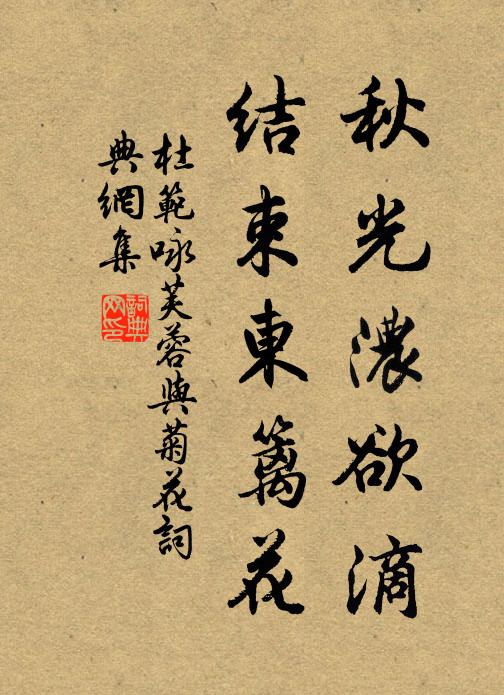 秋光濃欲滴
結束東籬花
杜範咏芙蓉與菊花詞
典網集
詞典
网印